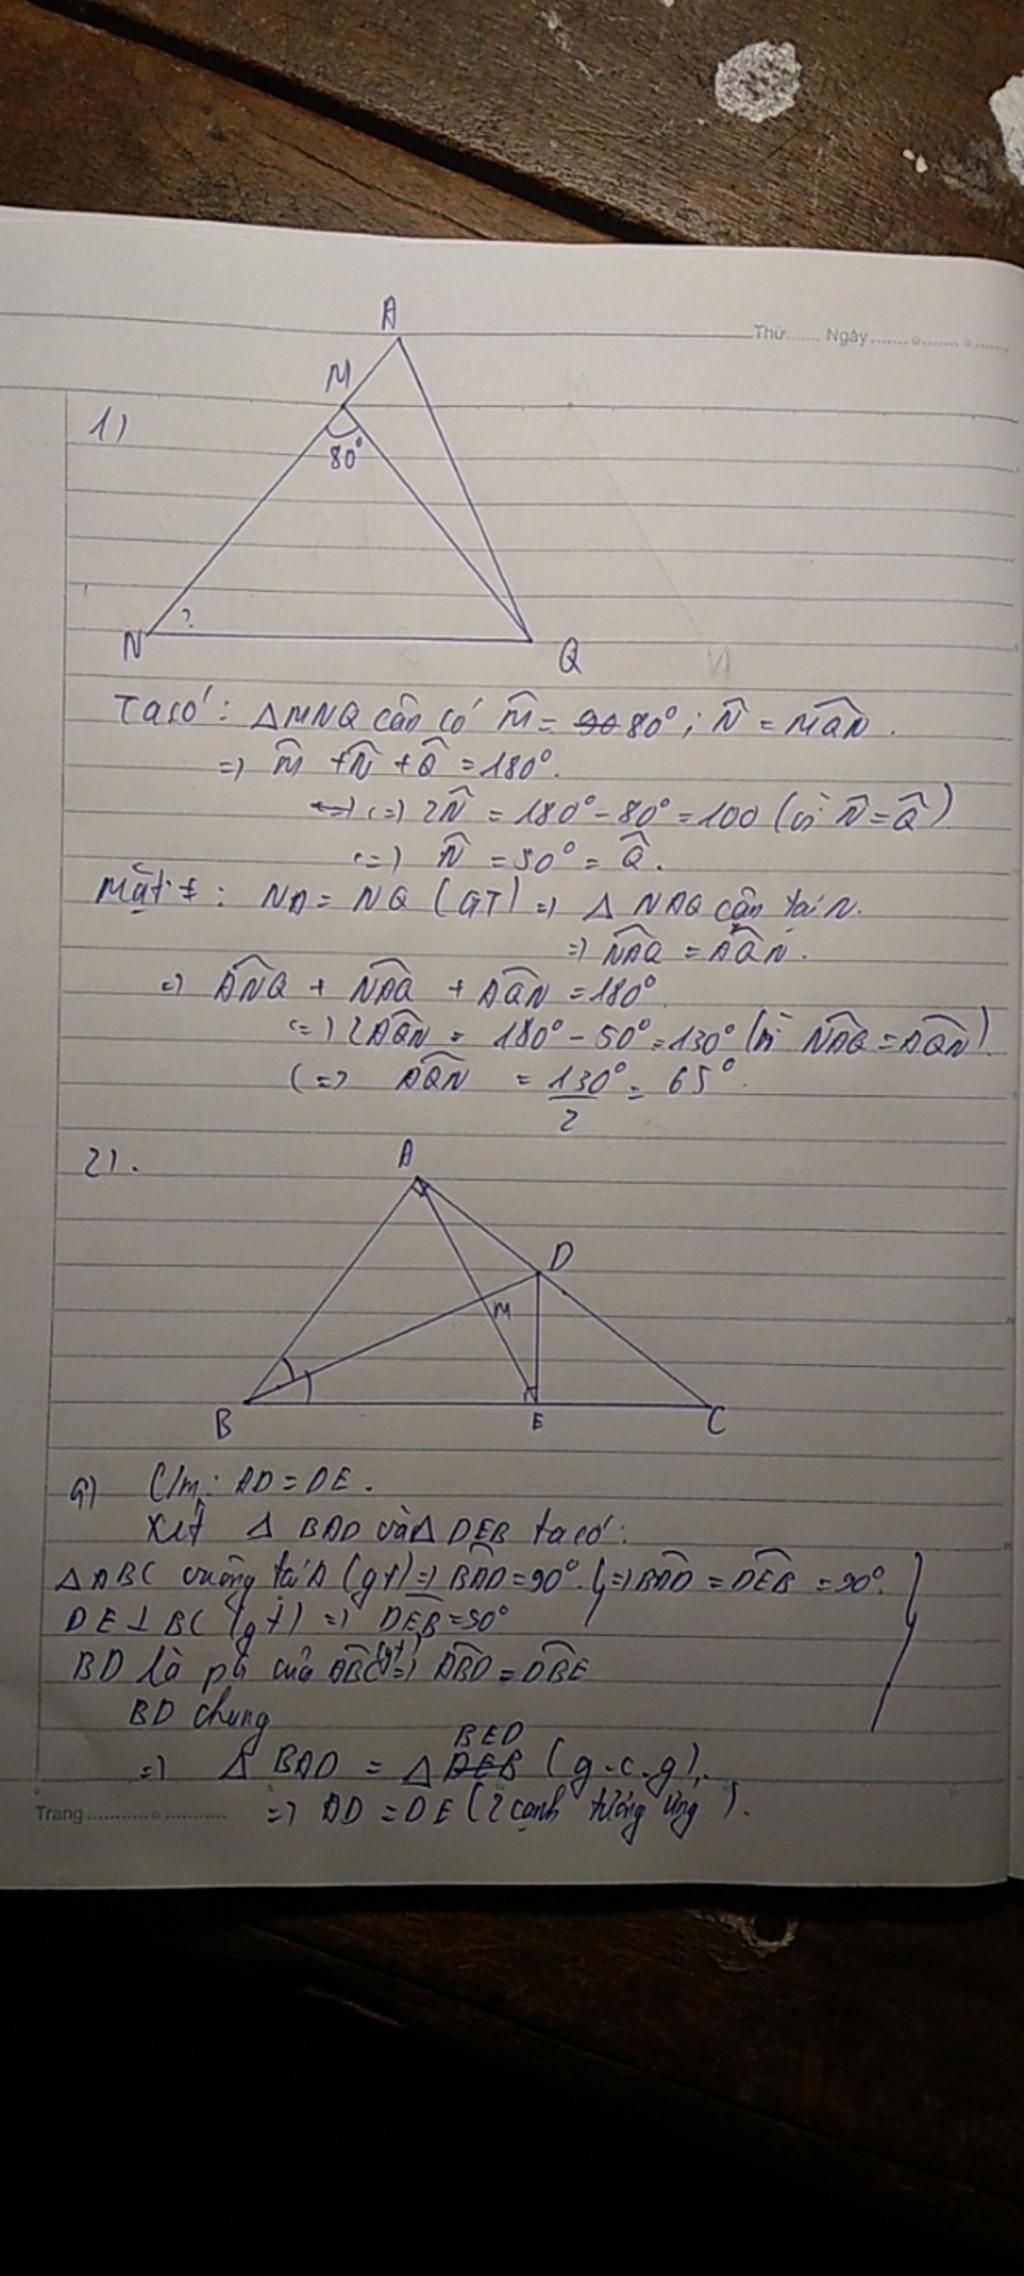 Thứ....... Ngày........o........o.......
A
M
1)
80°
?
N
Q
Ta có: △MNQ cân có M̂ = 80°; N̂ = MQN̂.
=> M̂ + N̂ + Q̂ = 180°.
<=> 2N̂ = 180° - 80° = 100 (vì N̂ = Q̂)
<=> N̂ = 50° = Q̂.
Mặt ≠: NA = NQ (GT) => △ NAQ cân tại N.
=> NAQ̂ = AQN̂.
=> ANQ̂ + NAQ̂ + AQN̂ = 180°
<=> 2AQN̂ = 180° - 50° = 130° (vì NAQ̂ = AQN̂).
<=> AQN̂ = 130°/2 = 65°.
2).
A
D
M
B
E
C
a) C/m: AD = DE.
Xét △ BAD và △ DEB ta có:
△ABC vuông tại A (gt) => BAD̂ = 90°. } => BAD̂ = DEB̂ = 90°. }
DE ⊥ BC (gt) => DEB̂ = 90°
BD là pg của ABĈ (gt) => ABD̂ = DBÊ
BD chung
=> △ BAD = △ BED (g-c-g).
=> AD = DE (2 cạnh tương ứng).
Trang............o............